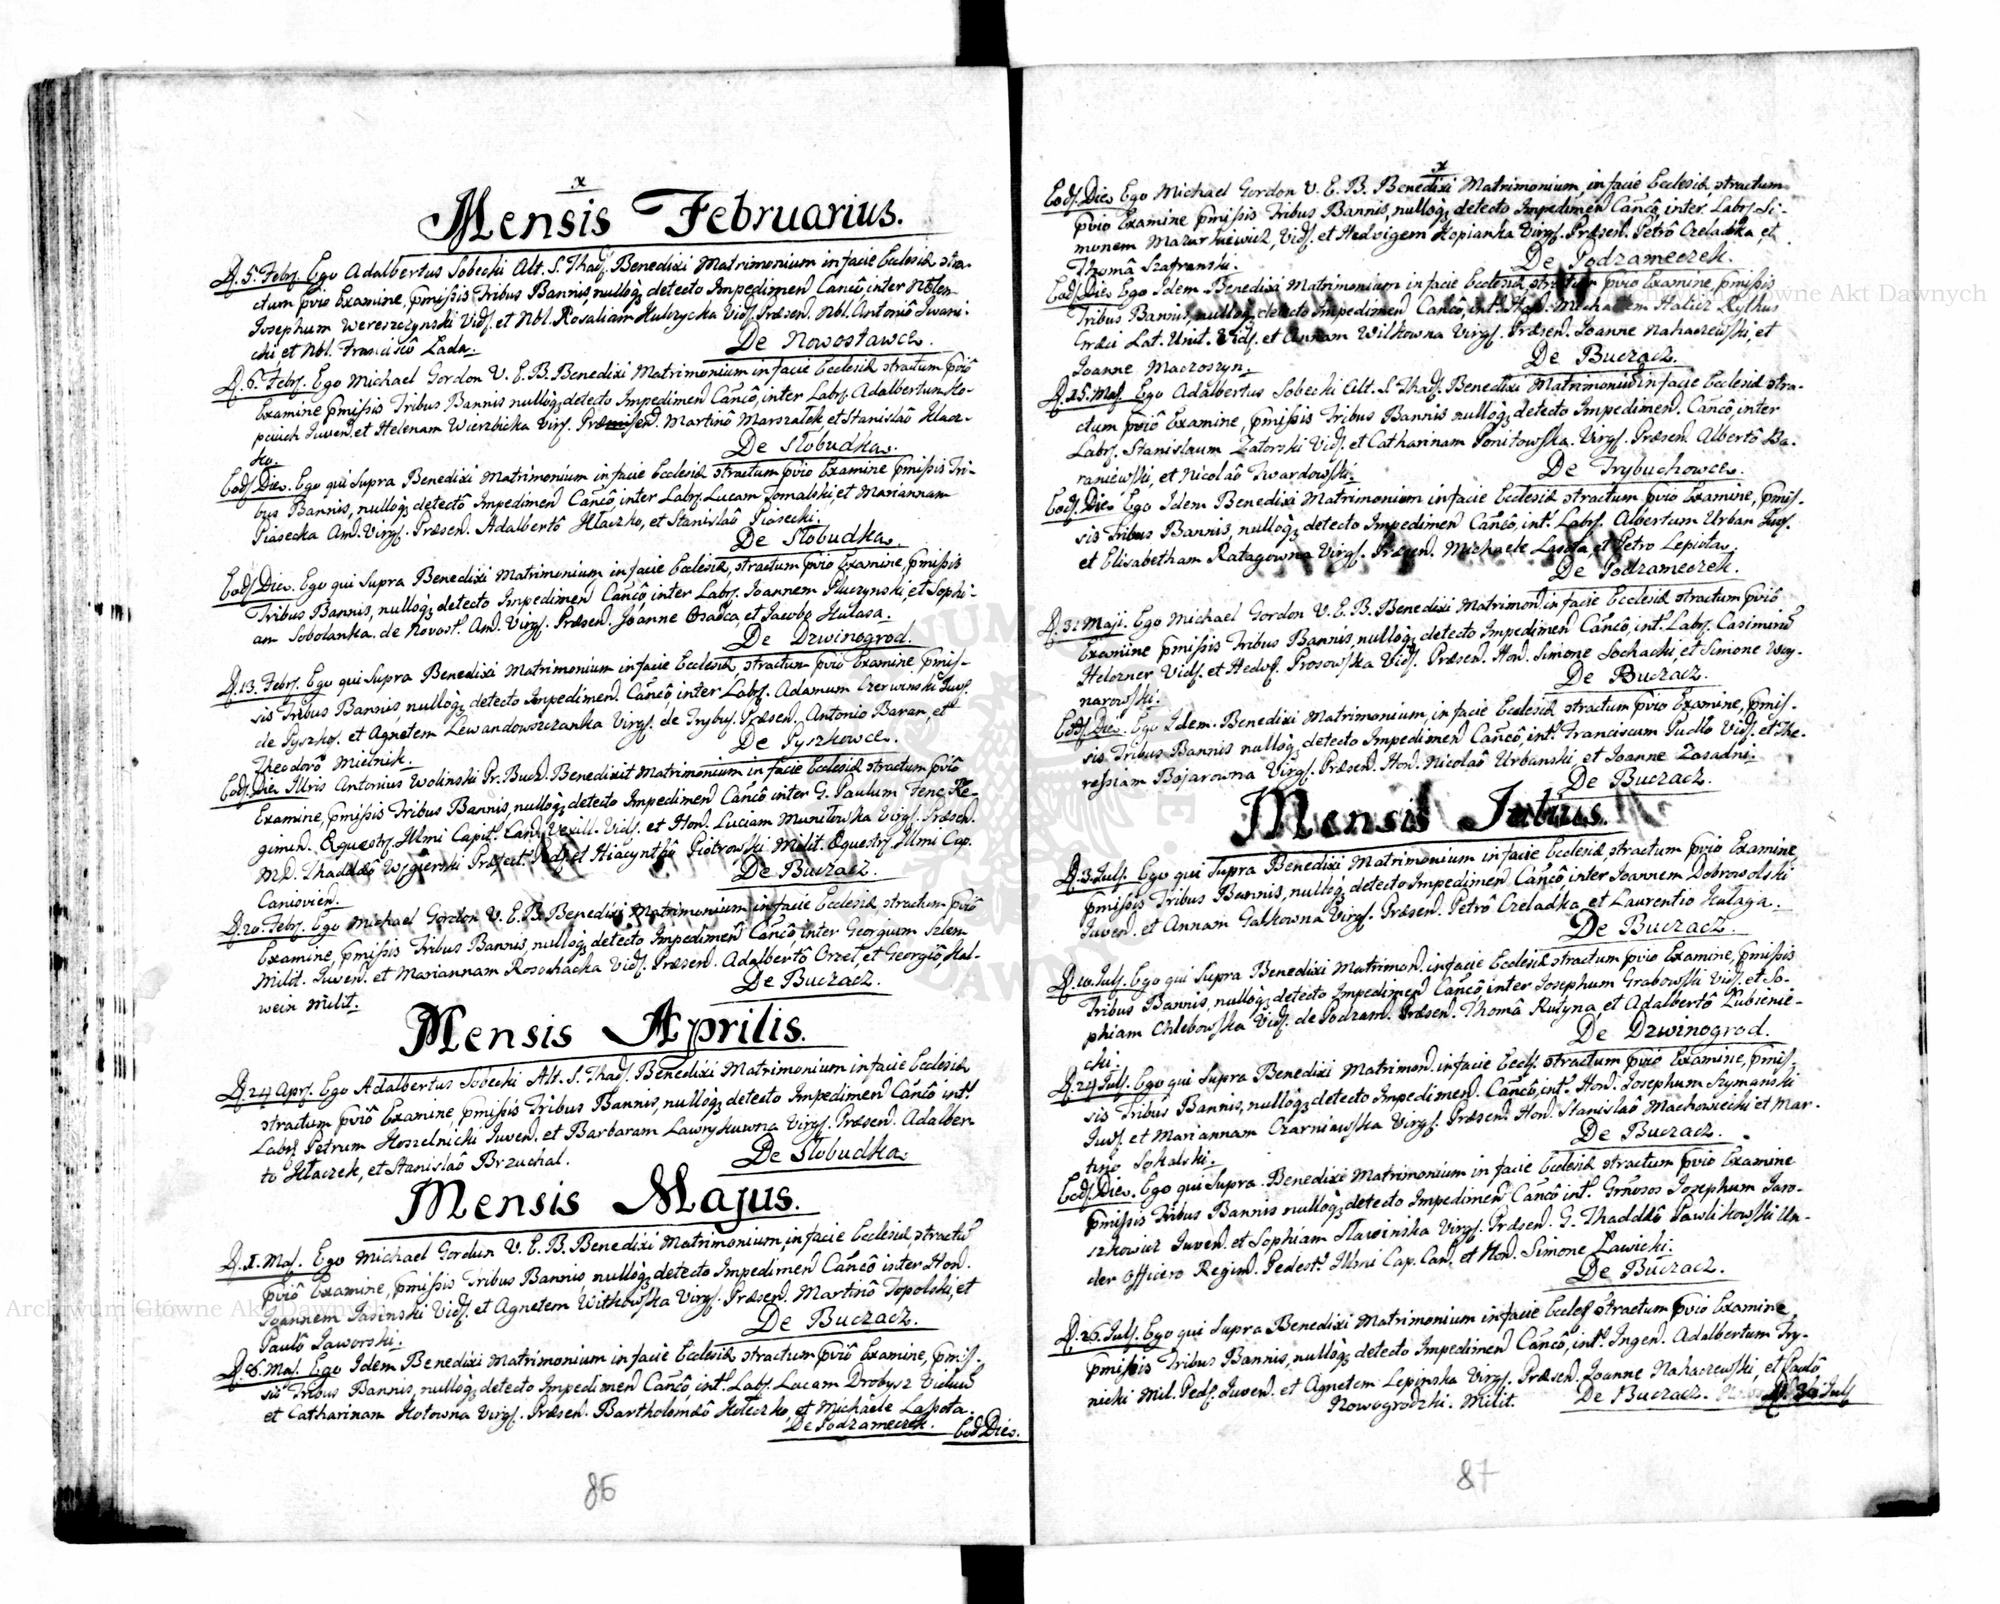 Mensis Februarius.
D. 5. Febr. Ego Adalbertus Sobecki Alt. S. Thad. Benedixi Matrimonium in facie Ecclesiæ stra-
ctum pvio Examine, pmissis Tribus Bannis, nullóq; detecto Impedimen Cancô inter
Josephum Wereszczynski Vid. et Nbl. Rosaliam Hulczycka Vid. Præsen. Nbl. Antoniô Iwani-
cki et Nbl. Franciscô Lada.
De Nowostawce.
D. 6. Febr. Ego Michael Gordon V. E. B. Benedixi Matrimonium in facie Ecclesiæ stractum pviô
Examine pmissis Tribus Bannis nullóq; detecto Impedimen Cancô, inter Labr. Adalbertum Ko-
pciuch Juven. et Helenam Wierzbicka Virg. Præsen. Martinô Marszalek et Stanislaô Klacz-
ko.
De Slobudka.
Eod. Die. Ego qui Supra Benedixi Matrimonium in facie Ecclesiæ stractum pvio Examine pmissis Tri-
bus Bannis, nullóq; detectô Impedimen Cancô, inter Labr. Lucam Tomalski, et Mariannam
Piasecka Am. Virg. Præsen. Adalbertô Klaczko, et Stanislaô Piasecki.
De Slobudka.
Eod. Die. Ego qui Supra Benedixi Matrimonium in facie Ecclesiæ, stractum pvio Examine, pmissis
Tribus Bannis, nullóq; detecto Impedimen Cancô inter Labr. Joannem Pluczynski, et Sophi-
am Sobolanka de Novost. Am. Virg. Præsen. Joanne et Jacobo Hulasa.
De Dzwinogrod.
D. 13. Febr. Ego qui Supra Benedixi Matrimonium in facie Ecclesiæ stractum pviô Examine pmis-
sis Tribus Bannis, nullóq; detecto Impedimen. Cancô, inter Labr. Adamum Czerwinski Juv.
de Pyszko. et Agnetem Lewandowszczanka Virg. de Trybu. Præsen. Antonio Baran, et
Theodorô Mielnik.
De Pyszkowce.
Eod. Die Illris Antonius Wolinski Pr. Bucz. Benedixit Matrimonium in facie Ecclesiæ stractum pviô
Examine, pmissis Tribus Bannis, nullóq; detecto Impedimen Cancô inter G. Paulum Tenc. Re-
gimen. Equestr. Illmi Capit. Can. Vexill. Vid. et Hon. Luciam Munilowska Virg. Præsen.
M.D. Thaddæô Wigierski Præfect. Ped. et Hiacynthô Piotrowski Milit. Equestr. Illmi Cap.
Canievien.
De Buczacz.
D. 20. Febr. Ego Michael Gordon V. E. B. Benedixi Matrimonium in facie Ecclesiæ stractum pviô
Examine, pmissis Tribus Bannis, nullóq; detecto Impedimen Cancô inter Georgium Szlem
Milit. Juven. et Mariannam Rosochacka Vid. Præsen. Adalbertô Orzel, et Georgiô, Hal-
wein Milit.
De Buczacz.
Mensis Aprilis.
D. 24 Apr. Ego Adalbertus Sobecki Alt. S. Thad. Benedixi Matrimonium in facie Ecclesiæ
stractum pviô Examine, pmissis Tribus Bannis, nullóq; detecto Impedimen Cancô int.
Labr. Petrum Koszelnicki Juven. et Barbaram Lawrykuwna Virg. Præsen. Adalber-
to Klaczek, et Stanislaô Brzuchal.
De Slobudka.
Mensis Majus.
D. 1. Maj. Ego Michael Gordon V. E. B. Benedixi Matrimonium, in facie Ecclesiæ stractu
pviô Examine, pmissis Tribus Bannis, nullóq; detecto Impedimen Cancô inter Hon.
Joannem Jasinski Vid. et Agnetem Witkowska Virg. Præsen. Martinô Topolski, et
Paulô Jaworski.
De Buczacz.
D. 8. Maj. Ego Idem Benedixi Matrimonium in facie Ecclesiæ stractum pviô Examine, pmis-
sis Tribus Bannis, nullóq; detecto Impedimen Cancô int. Labr. Lucam Drobysz Viduu
et Catharinam Kotowna Virg. Præsen. Bartholomæô Holeczko, et Michaele Lassota.
De Podzameczek. Eod. Die.
86
Eod. Die. Ego Michael Gordon V. E. B. Benedixi Matrimonium, in facie Ecclesiæ stractum
pvio Examine pmissis Tribus Bannis, nullóq; detecto Impedimen Cancô, inter Labr. Si-
monem Mazurkiewicz, Vid. et Hedvigem Kopianka Virg. Præsen. Petrô Czeladka, et
Thomâ Szafranski.
De Podzameczek.
Eod. Die. Ego Idem Benedixi Matrimonium in facie Ecclesiæ stractum pvio Examine, pmissis
Tribus Bannis, nullóq; detecto Impedimen Cancô, int. Michaelem Halicz
Græci Lat. Unit. Vid. et Annam Wilkowna Virg. Præsen. Joanne Nahaczewski, et
Joanne Maczoszyn.
De Buczacz.
D. 15. Maj. Ego Adalbertus Sobecki Alt. S. Thad. Benedixi Matrimoniu in facie Ecclesiæ stra-
ctum pviô Examine, pmissis Tribus Bannis nullóq; detecto Impedimen. Cancô, inter
Labr. Stanislaum Zatorski Vid. et Catharinam Ponitowska. Virg. Præsen. Albertô Ba-
raniewski, et Nicolaô Twardowski.
De Trybuchowce.
Eod. Die. Ego Idem Benedixi Matrimonium in facie Ecclesiæ stractum pvio Examine, pmis-
sis Tribus Bannis, nullóq; detecto Impedimen Cancô, int. Labr. Albertum Urban Juv.
et Elisabetham Ratagowna Virg. Præsen. Michaele Lasota, et Petro Lepiota.
De Podzameczek.
D. 31. Maji. Ego Michael Gordon V. E. B. Benedixi Matrimon. in facie Ecclesiæ stractum pviô
Examine pmissis Tribus Bannis, nullóq; detecto Impedimen Cancô, int. Labr. Casimiru
Helczner Vid. et Hedv. Prosowska Vid. Præsen. Hon. Simone Sochacki, et Simone Wcy-
narowski.
De Buczacz.
Eod. Die. Ego Idem. Benedixi Matrimonium, in facie Ecclesiæ stractum pvio Examine, pmis-
sis Tribus Bannis nullóq; detecto Impedimen Cancô, int. Franciscum Pudlo Vid. et The-
ressiam Bojarowna Virg. Præsen. Hon. Nicolaô Urbanski, et Joanne Zasadni.
De Buczacz.
Mensis Julius.
D. 3. Jul. Ego qui Supra Benedixi Matrimonium in facie Ecclesiæ, stractum pvio Examine,
pmissis Tribus Bannis, nullóq; detecto Impedimen Cancô, inter Joannem Dobrowolski
Juven. et Annam Galkowna Virg. Præsen. Petrô Czeladka, et Laurentio Hulaga.
De Buczacz.
D. 10. Jul. Ego qui Supra Benedixi Matrimon. in facie Ecclesiæ stractum pvio Examine, pmissis
Tribus Bannis, nullóq; detecto Impedimen Cancô, inter Josephum Grabowski Vid. et So-
phiam Chlebowska Vid. de Podzam. Præsen. Thomâ Rutyna, et Adalbertô Lubienie-
cki.
De Dzwinogrod.
D. 24 Jul. Ego qui Supra Benedixi Matrimon. in facie Eccl. stractum pvio Examine, pmis-
sis Tribus Bannis, nullóq; detecto Impedimen. Cancô, int. Hon. Josephum Szymanski
Juv. et Mariannam Czarniawska Virg. Præsen. Hon. Stanislaô Machowiecki et Mar-
tinô Sokalski.
De Buczacz.
Eod. Die. Ego qui Supra. Benedixi Matrimonium in facie Ecclesiæ stractum pvio Examine
pmissis Tribus Bannis nullóq; detecto Impedimen Cancô int. Grnosos Josephum Jaro-
szkowicz Juven. et Sophiam Slawinska Virg. Præsen. G. Thaddæô Pawlikowski Un-
der Officero Regim. Pedest. Illmi Cap. Can. et Hon. Simone Lawicki.
De Buczacz.
D. 26. Jul. Ego qui Supra Benedixi Matrimonium in facie Eccles stractum pvio Examine
pmissis Tribus Bannis, nullóq; detecto Impedimen Cancô, int. Ingen. Adalbertum Try-
nicki Mil. Ped. Juven. et Agnetem Lepinska Virg. Præsen. Joanne Nahaczewski, et Paulô
Nowogrodzki. Milit. De Buczacz. D. 30 Jul
87
Archiwum Główne Akt Dawnych